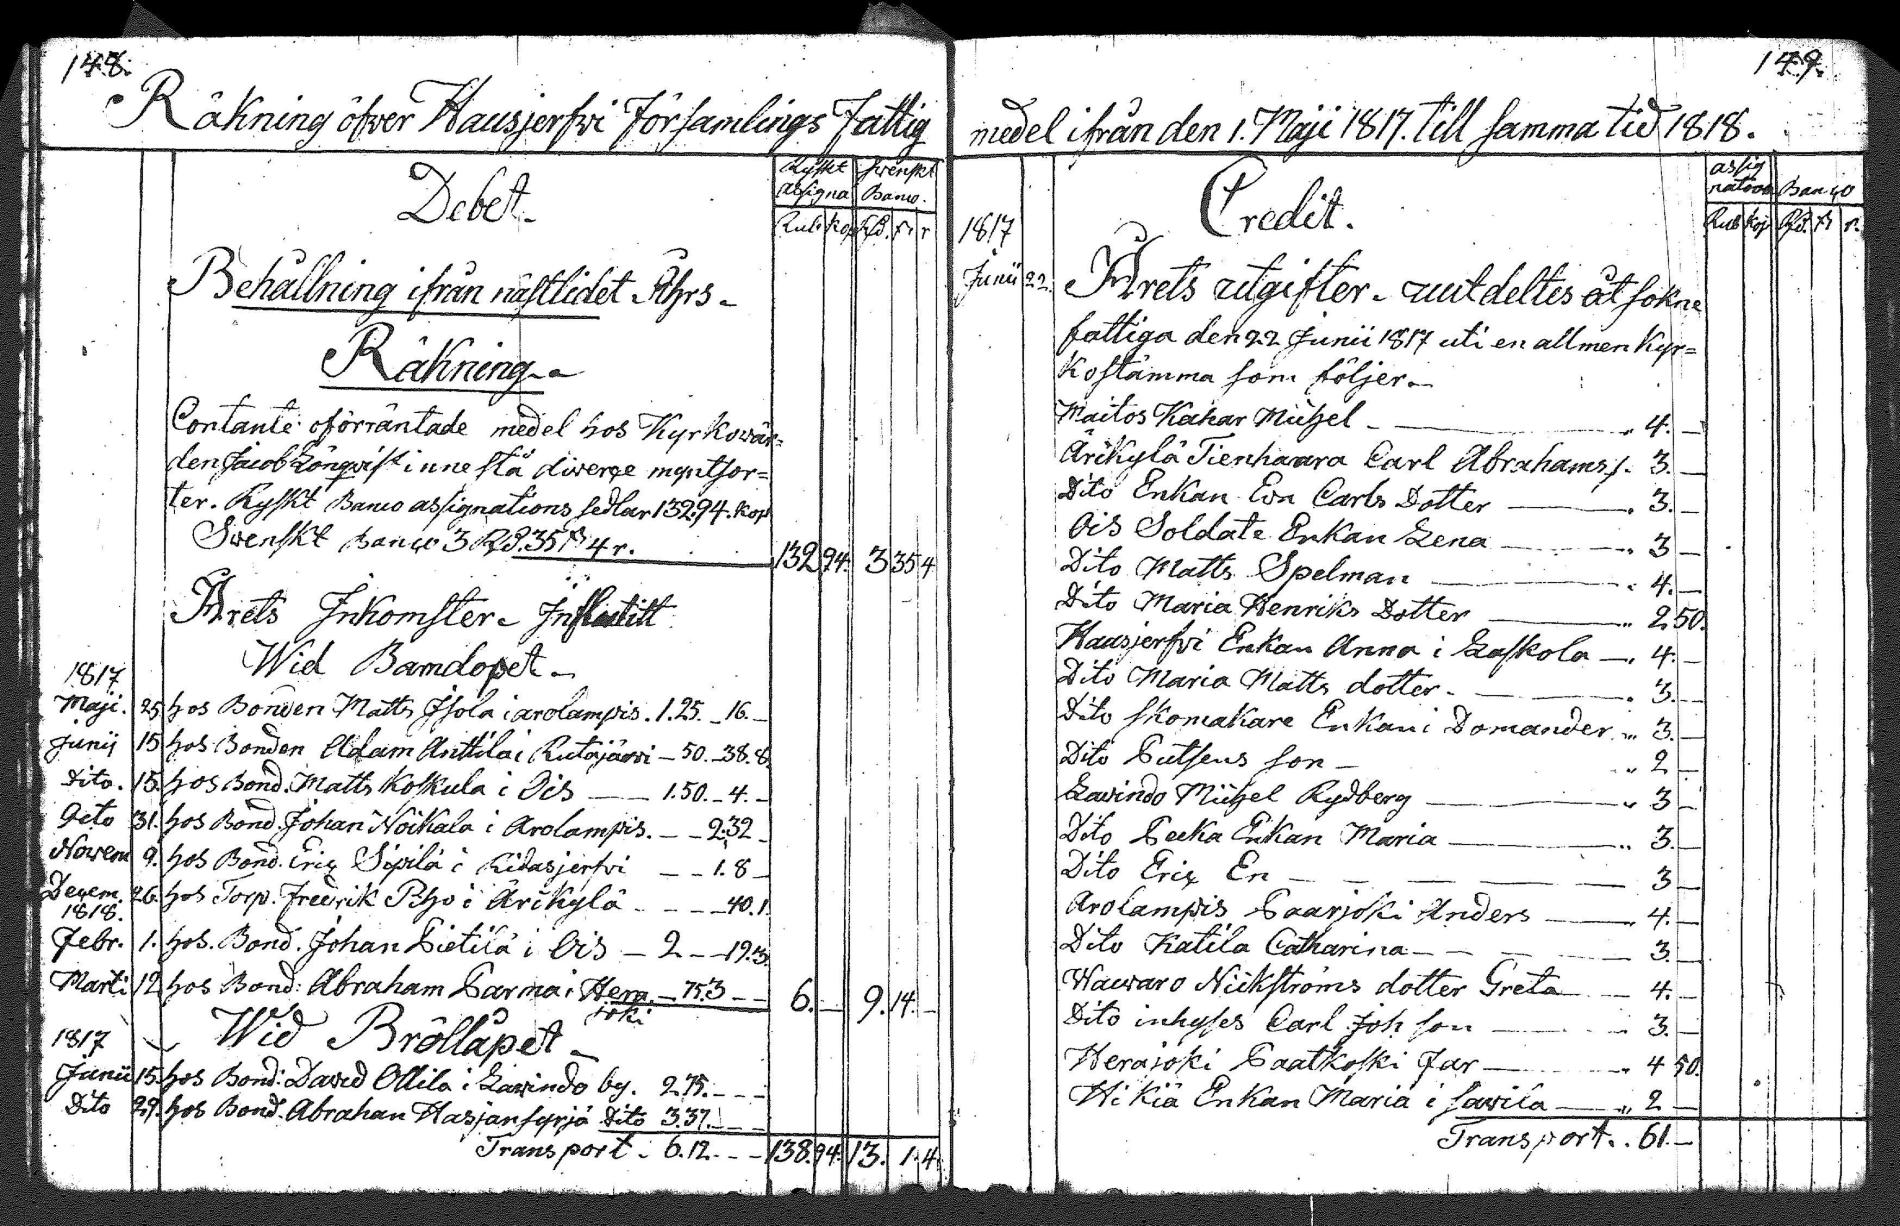 148.
Räkning öfver Hausjerfvi Församlings Fattig
Ryskt Swenskt
assigna Banco.
Debet.
Rub kop Rd. sr r
Behållning ifrån nästlidet Åhrs
Räkning
Contante oförräntade medel hos Kyrkowär=
den Jacob Lönqvist inne stå diverse myntsor=
ter. Ryskt Banco assignations sedlar 132.94. kop
Swenskt Banco 3 Rd. 35 ß 4 r. 132 94. 3 35 4
Årets Inkomster. Influtitt
Wid Barndopet
1817
Maji. 25 hos Bonden Matts Isola i arolampis. 1.25. 16.
Junij 15 hos Bonden Adam Anttila i Rutajärvi 50. 38. 8.
Dito. 15. hos Bond. Matts Koskula i Ois 1.50. 4.
Octo 31. hos Bond. Johan Noikala i Arolampis. 2.32
Novem 9. hos Bond. Eric Sipilä i Ridasjerfvi 1. 8
Decem. 26. hos Torp. Fredrik Piho i Arikylä 40. 1.
1818.
Febr. 1. hos. Bond. Johan Pietilä i Ois 2 19. 3.
Marti 12 hos Bond: Abraham Parma i Hera 75. 3 6. 9. 14.
joki
Wid Bröllåpet
1817
Junii 15. hos Bond: David Ollila i Lavindo by. 2.75.
Dito 29. hos Bond. Abrahan Hasjansyrjä Dito 3.37.
Transport. 6.12. 138. 94. 13. 1. 4.
149.
medel ifrån den 1. Maji 1817. till samma tid 1818.
assig
natioon Banco
Credit.
Rub kop Rd. sr r.
1817
Junii 22. Årets utgifter. uut deltes åt sokne
fattiga den 22 Junii 1817 uti en allmen Kyr=
kostämma som följer.
Maitos Kahar Michel 4.
Arikylä Tienhaara Carl Abrahams s. 3.
Dito Enkan Eva Carls Dotter 3.
Ois Soldate Enkan Lena 3
Dito Matts Spelman 4.
Dito Maria Henriks Dotter 2 50.
Hausjerfvi Enkan Anna i Laskola 4.
Dito Maria Matts dotter. 3.
Dito skomakare Enkan i Domander 3.
Dito Putsens son 2
Lavindo Michel Rydberg 3
Dito Pecka Enkan Maria 3.
Dito Eric En 3
Arolampis Paarjoki Anders 4.
Dito Katila Catharina 3.
Wawaro Nickströms dotter Greta 4.
Dito inhyses Carl Joh son 3.
Herajoki Paatkoski far 4 50.
Hikiä Enkan Maria i Sawila 2
Transport. 61.